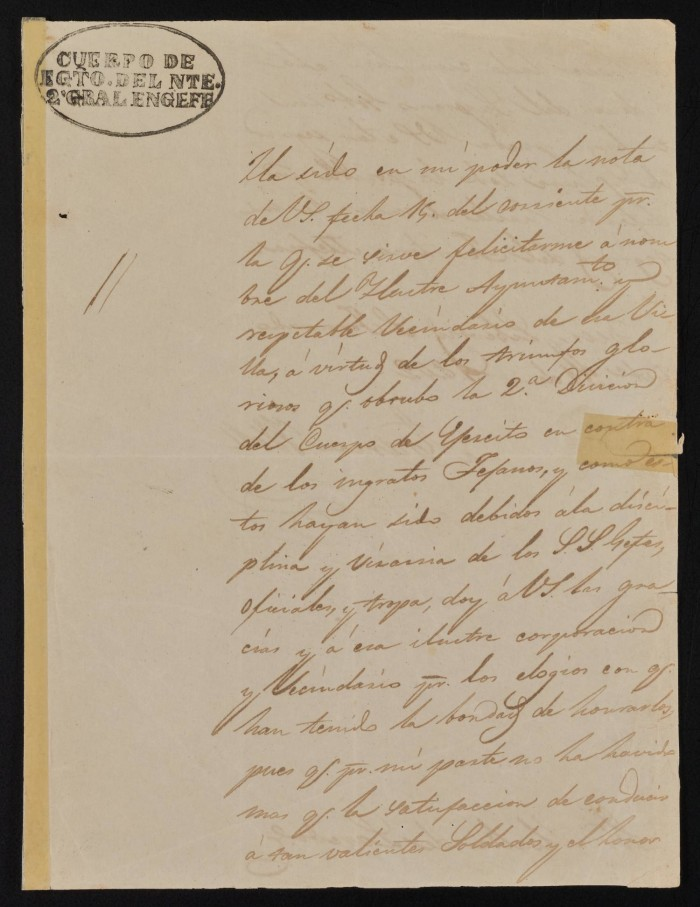 CUERPO DE
EGTO. DEL NTE.
2º GRAL ENGEFE
Ha sido en mi poder la nota
de VS. fecha 15. del corriente pr.
la q. se sirve felicitarme á nom
bre del Ylustre Ayuntamto. y
respetable Vecindario de esa Vi
lla, á virtud de los triunfos glo-
riosos q. obtubo la 2.a Division
del Cuerpo de Ejercito en contra
de los ingratos Tejanos, y como es-
tos hayan sido debidos á la disci-
plina y vizarria de los S.S. Gefes,
oficiales, y tropa, doy á VS. las gra-
cias y á esa ilustre corporacion
y Vecindario pr. los elogios con q.
han tenido la bondad de honrarlos,
pues q. pr. mi parte no ha havido
mas q. la satisfaccion de conducir
á tan valientes Soldados y el honor